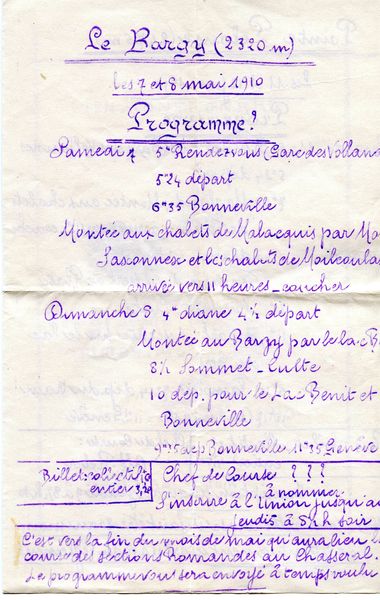 Le Bargy (2320 m)
les 7 et 8 mai 1910
Programme?
Samedi 7 5" Rendezvous (Gare des Vollan
5"24 départ
6"35 Bonneville
Montée aux chalets de Malacquis par Mo
Saxonnex et les chalets de
arrivée vers 11 heures_coucher
Dimanche 8 4" diane 4½ départ
Montée au Bargy par le lac B
8½ Sommet_Culte
10 dep. pour le Lac Benit et
Bonneville
9"35 dep Bonneville 11"35 Genève
Billet collectif
entier
Chef de Course ? ? ?
à nommer
S'inscrire à l'Union jusqu'au
jeudis à 8½ h soir
C'est vers la fin du mois de mai qu'aura lieu la
course des sections Romandes au Chasseral.
Le programme vous sera envoyé à temps voulu